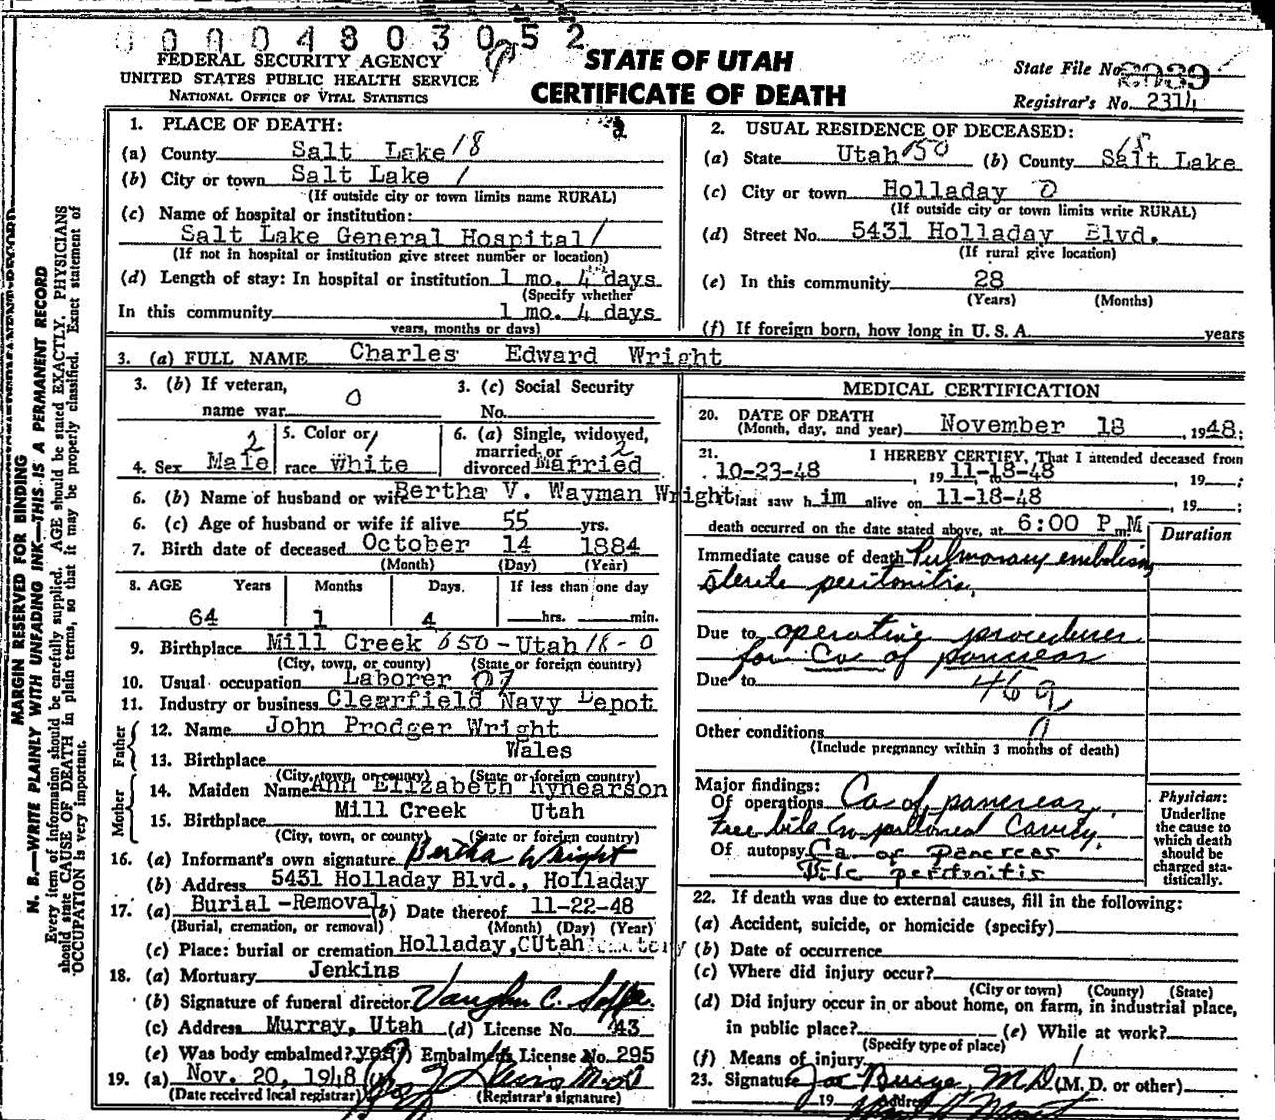 0000480305 2
FEDERAL SECURITY AGENCY
UNITED STATES PUBLIC HEALTH SERVICE
NATIONAL OFFICE OF VITAL STATISTICS
STATE OF UTAH
CERTIFICATE OF DEATH
State File No.
Registrar's No. 2314
MARGIN RESERVED FOR BINDING
N. B.—WRITE PLAINLY WITH UNFADING INK—THIS IS A PERMANENT RECORD
Every item of information should be carefully supplied. AGE should be stated EXACTLY. PHYSICIANS
should state CAUSE OF DEATH in plain terms, so that it may be properly classified. Exact statement of
OCCUPATION is very important.
1. PLACE OF DEATH:
(a) County Salt Lake 18
(b) City or town Salt Lake 1
(If outside city or town limits name RURAL)
(c) Name of hospital or institution:
Salt Lake General Hospital 1
(If not in hospital or institution give street number or location)
(d) Length of stay: In hospital or institution 1 mo. 4 days
(Specify whether
In this community 1 mo. 4 days
years, months or days)
2. USUAL RESIDENCE OF DECEASED:
(a) State Utah 50 (b) County Salt Lake 18
(c) City or town Holladay 0
(If outside city or town limits write RURAL)
(d) Street No. 5431 Holladay Blvd.
(If rural give location)
(e) In this community 28
(Years) (Months)
(f) If foreign born, how long in U. S. A. years
3. (a) FULL NAME Charles Edward Wright
3. (b) If veteran, name war 0
3. (c) Social Security No.
4. Sex Male 2
5. Color or race White 1
6. (a) Single, widowed, married or divorced Married 2
6. (b) Name of husband or wife Bertha V. Wayman Wright
6. (c) Age of husband or wife if alive 55 yrs.
7. Birth date of deceased October 14 1884
(Month) (Day) (Year)
8. AGE Years Months Days If less than one day
64 1 4 hrs. min.
9. Birthplace Mill Creek 050-Utah 18-0
(City, town, or county) (State or foreign country)
10. Usual occupation Laborer 07
11. Industry or business Clearfield Navy Depot
Father
12. Name John Prodger Wright
13. Birthplace Wales
(City, town, or county) (State or foreign country)
Mother
14. Maiden Name Ann Elizabeth Rynearson
15. Birthplace Mill Creek Utah
(City, town, or county) (State or foreign country)
16. (a) Informant's own signature Bertha Wright
(b) Address 5431 Holladay Blvd., Holladay
17. (a) Burial-Removal (b) Date thereof 11-22-48
(Burial, cremation, or removal) (Month) (Day) (Year)
(c) Place: burial or cremation Holladay, Utah Cemetery
18. (a) Mortuary Jenkins
(b) Signature of funeral director Vaughn C.
(c) Address Murray, Utah (d) License No. 43
(e) Was body embalmed? yes Embalmers License No. 295
19. (a) Nov. 20, 1948
(Date received local registrar) (Registrar's signature)
MEDICAL CERTIFICATION
20. DATE OF DEATH
(Month, day, and year) November 18, 1948;
21. I HEREBY CERTIFY, That I attended deceased from
10-23-48, 19 11-18-48, 19 ;
last saw him alive on 11-18-48, 19 ;
death occurred on the date stated above, at 6:00 P.m. M
Duration
Immediate cause of death Pulmonary embolism,
sterile peritonitis,
Due to operative procedures
for Ca of pancreas
Due to
Other conditions
(Include pregnancy within 3 months of death)
Major findings:
Of operations Ca of pancreas.
Free bile in peritoneal cavity.
Of autopsy Ca. of Pancreas
Bile peritonitis
Physician:
Underline
the cause to
which death
should be
charged sta-
tistically.
22. If death was due to external causes, fill in the following:
(a) Accident, suicide, or homicide (specify)
(b) Date of occurrence
(c) Where did injury occur?
(City or town) (County) (State)
(d) Did injury occur in or about home, on farm, in industrial place,
in public place? (e) While at work?
(Specify type of place)
(f) Means of injury
23. Signature M.D. (M. D. or other)
19 Address